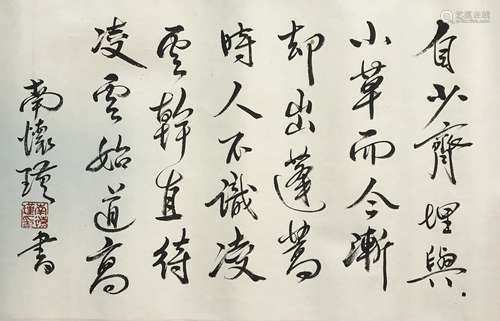 自少齊埋與
小草而今漸
却出蓬蒿
時人不識凌
雲幹直待
凌雲始道高
南懷瑾書